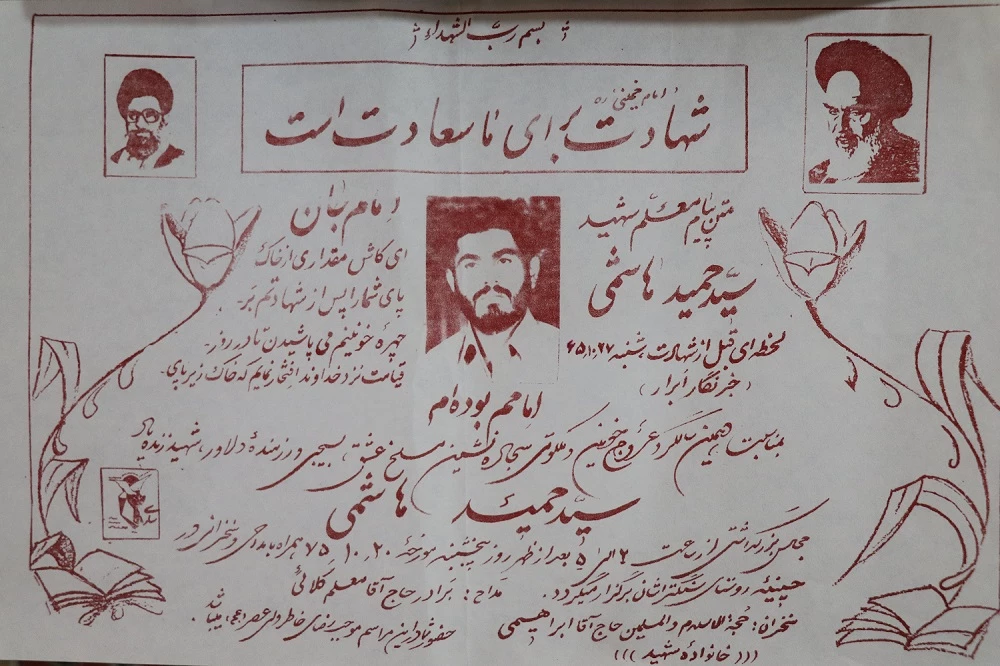 بسم رب الشهداء
امام خمینی ره
شهادت برای ما سعادت است
متن پیام معلم شهید
سید حمید هاشمی
لحظه‌ای قبل از شهادت شنبه ۶۵/۱۰/۲۷
(خبرنگار ابرار)
امام بان
ای کاش مقداری از خاک
پای شما را پس از شهادتم بر
چهره خونینم می پاشیدن تا در روز
قیامت نزد خداوند افتخار نمایم که خاک زیر پای
امامم بوده‌ام
بمناسبت دهمین سالگرد عروج خونین و ملکوتی سجاده نشین مسلخ عشق، بسیجی و رزمندهٔ دلاور، شهید زنده یاد
سید حمید هاشمی
مجلس بزرگداشتی از ساعت ۲ الی ۵ بعد از ظهر روز پنجشنبه مورخهٔ ۷۵/۱۰/۲۰ همراه با مداحی و سخنرانی در
حسینیه روستای سنگتراشان برگزار میگردد. مداح: برادر حاج آقا معلم کلائی
سخنران: حجة الاسلام والمسلمین حاج آقا ابراهیمی
حضور شما در این مراسم موجب رضای خاطر ولی عصر (عج) میباشد.
((( خانوادهٔ شهید )))